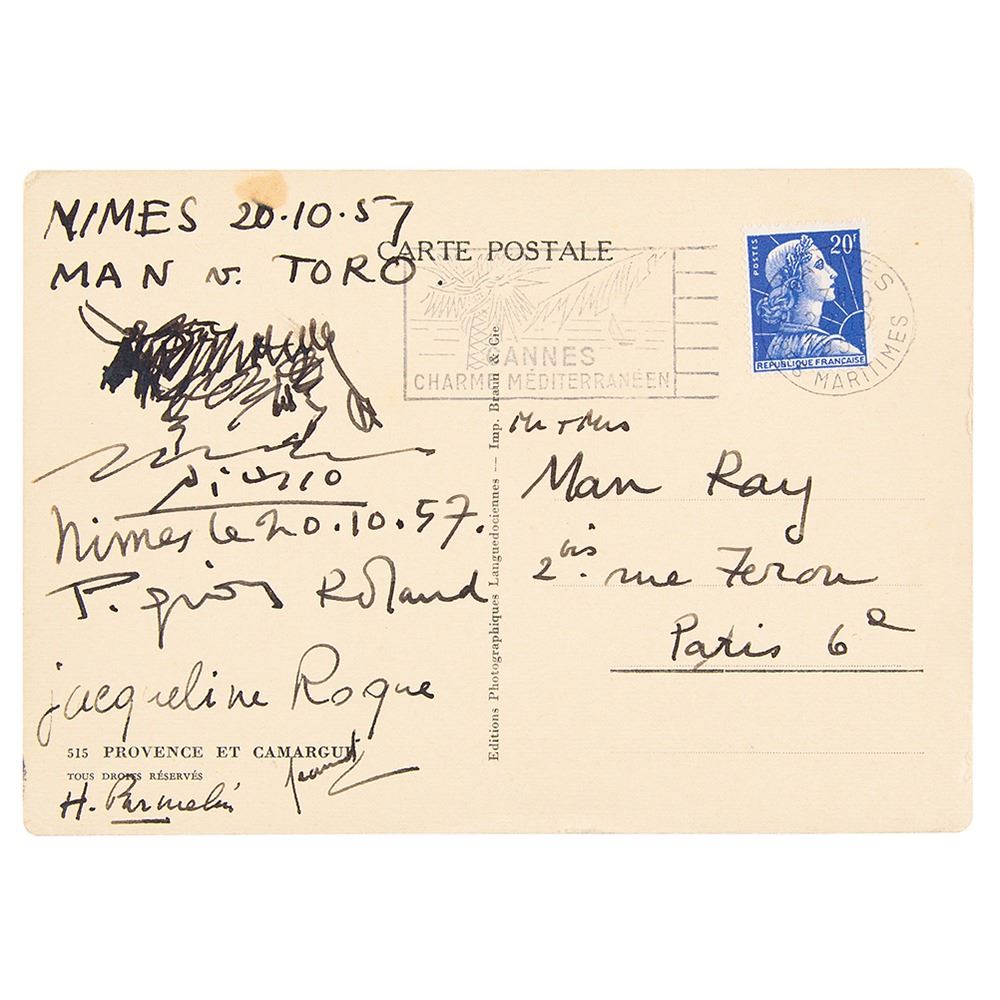 NIMES 20.10.57
MAN v. TORO.
Picasso
Nimes le 20.10.57.
P. Roland
Jacqueline Roque
515 PROVENCE ET CAMARGUE
TOUS DROITS RÉSERVÉS
H. Parmelin
CARTE POSTALE
CANNES
CHARME MÉDITERRANÉEN
Editions Photographiques Languedociennes — Imp. Braun & Cie
POSTES
20F
REPUBLIQUE FRANCAISE
MARITIMES
Mr + Mrs
Man Ray
2 bis. rue Ferou
Paris 6e